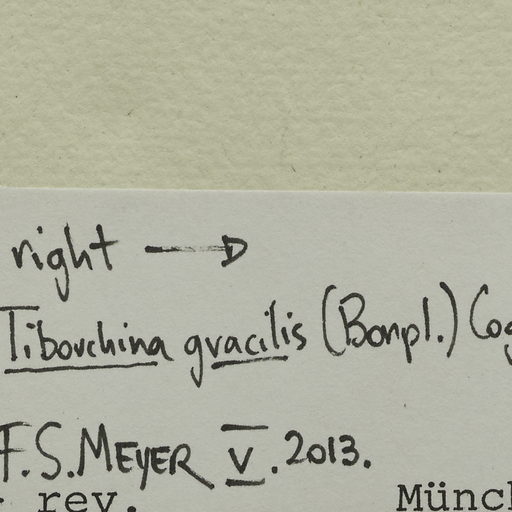 right →
Tibouchina gracilis (Bonpl.) Cog
F.S. MEYER V. 2013.
rev. Münch